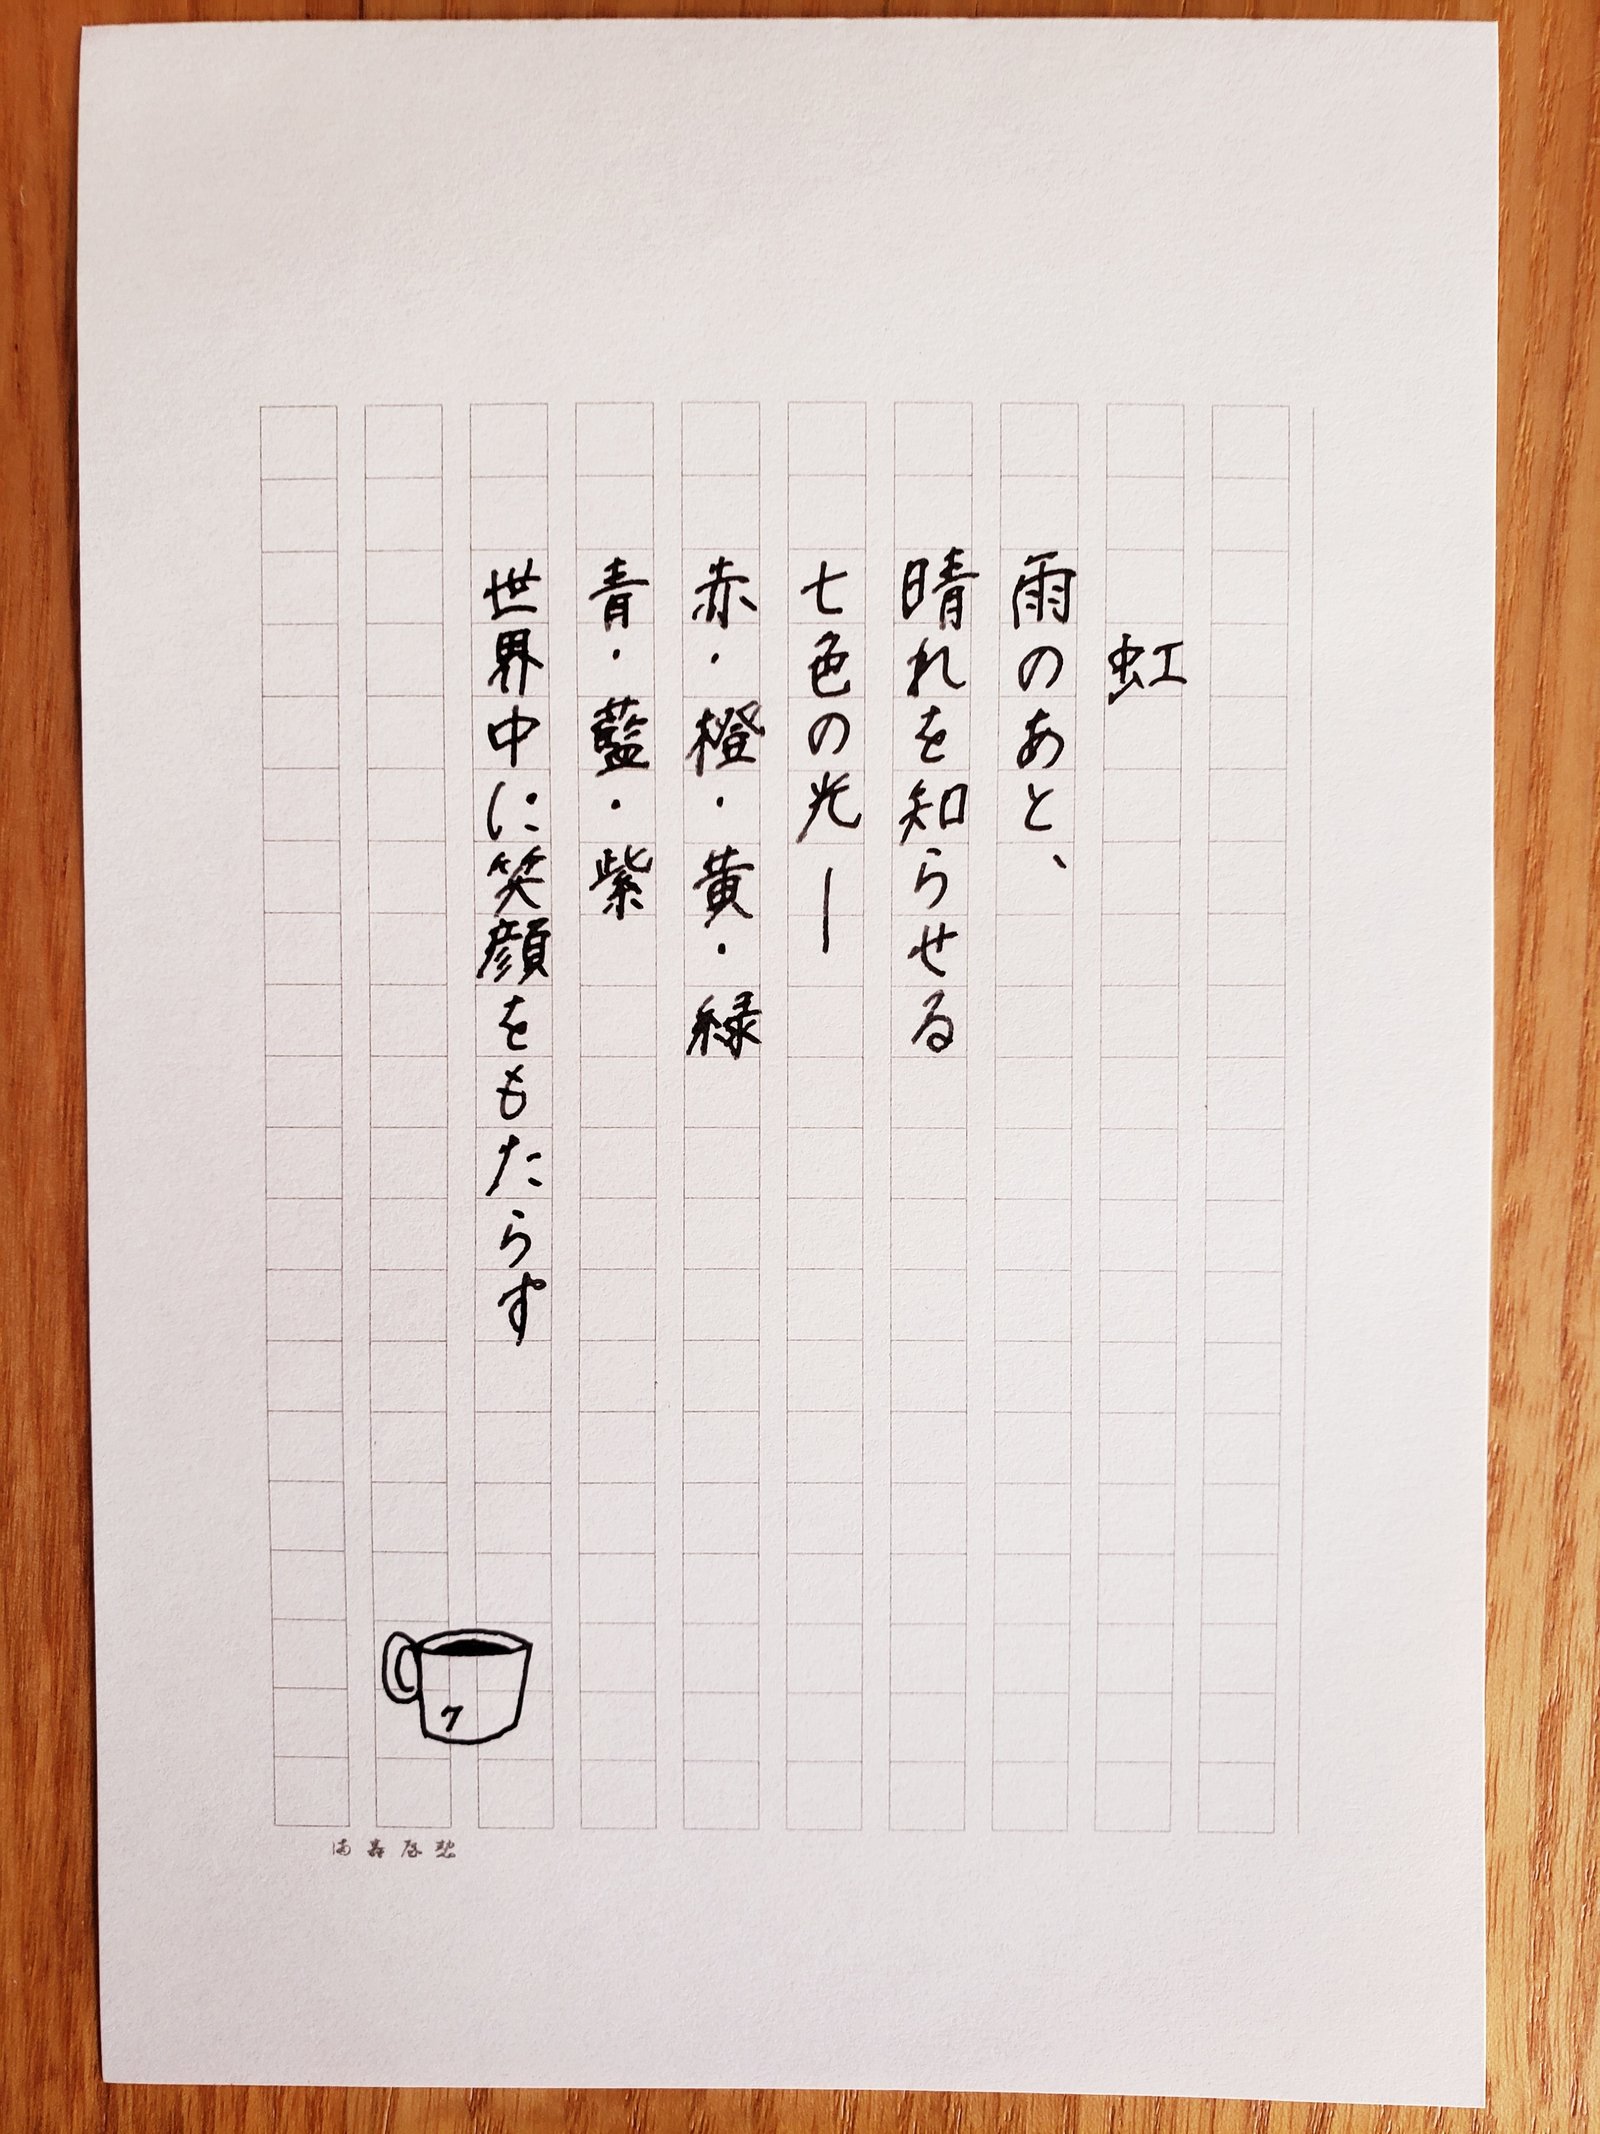 虹
雨のあと、
晴れを知らせる
七色の光―
赤・橙・黄・緑
青・藍・紫
世界中に笑顔をもたらす
7